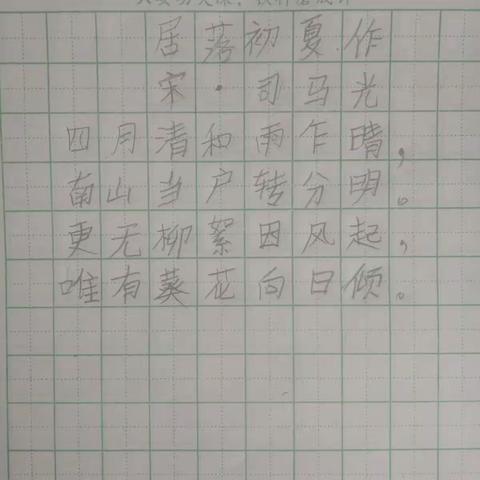 居落初夏作
宋·司马光
四月清和雨乍晴，
南山当户转分明。
更无柳絮因风起，
唯有葵花向日倾。